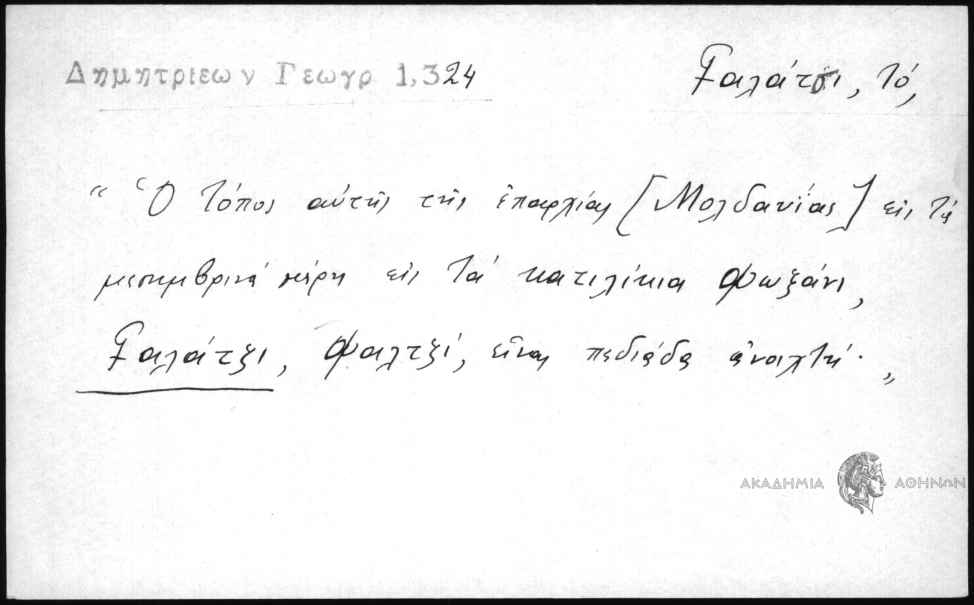 Δημητριεων Γεωγρ 1,324
Γαλάτσι, τό,
“ Ὁ τόπος αὐτῆς τῆς ἐπαρχίας [Μολδανίας] εἰς τὰ
μεσημβρινά μέρη εἰς τά κατιλίκια Φωξάνι,
Γαλάτζι, Φαλτζί, εἶναι πεδιάδα ἀνοιχτή· „
ΑΚΑΔΗΜΙΑ ΑΘΗΝΩΝ